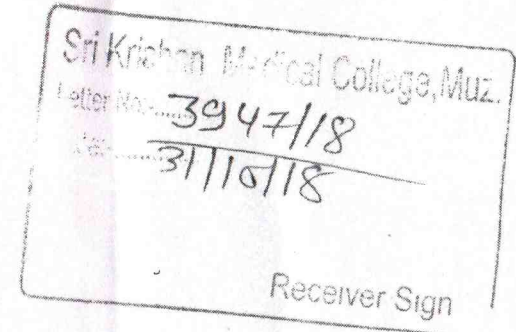 Sri Krishan Medical College, Muz.
Letter No:- 3947/18
31/10/18
Receiver Sign